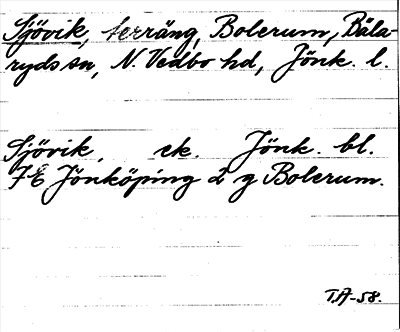 Sjövik, terräng, Bolerum, Bäla-
ryds sn, N. Vedbo hd, Jönk. l.
Sjövik, ek. Jönk. bl.
7E Jönköping 2 g Bolerum.
T.A-58.